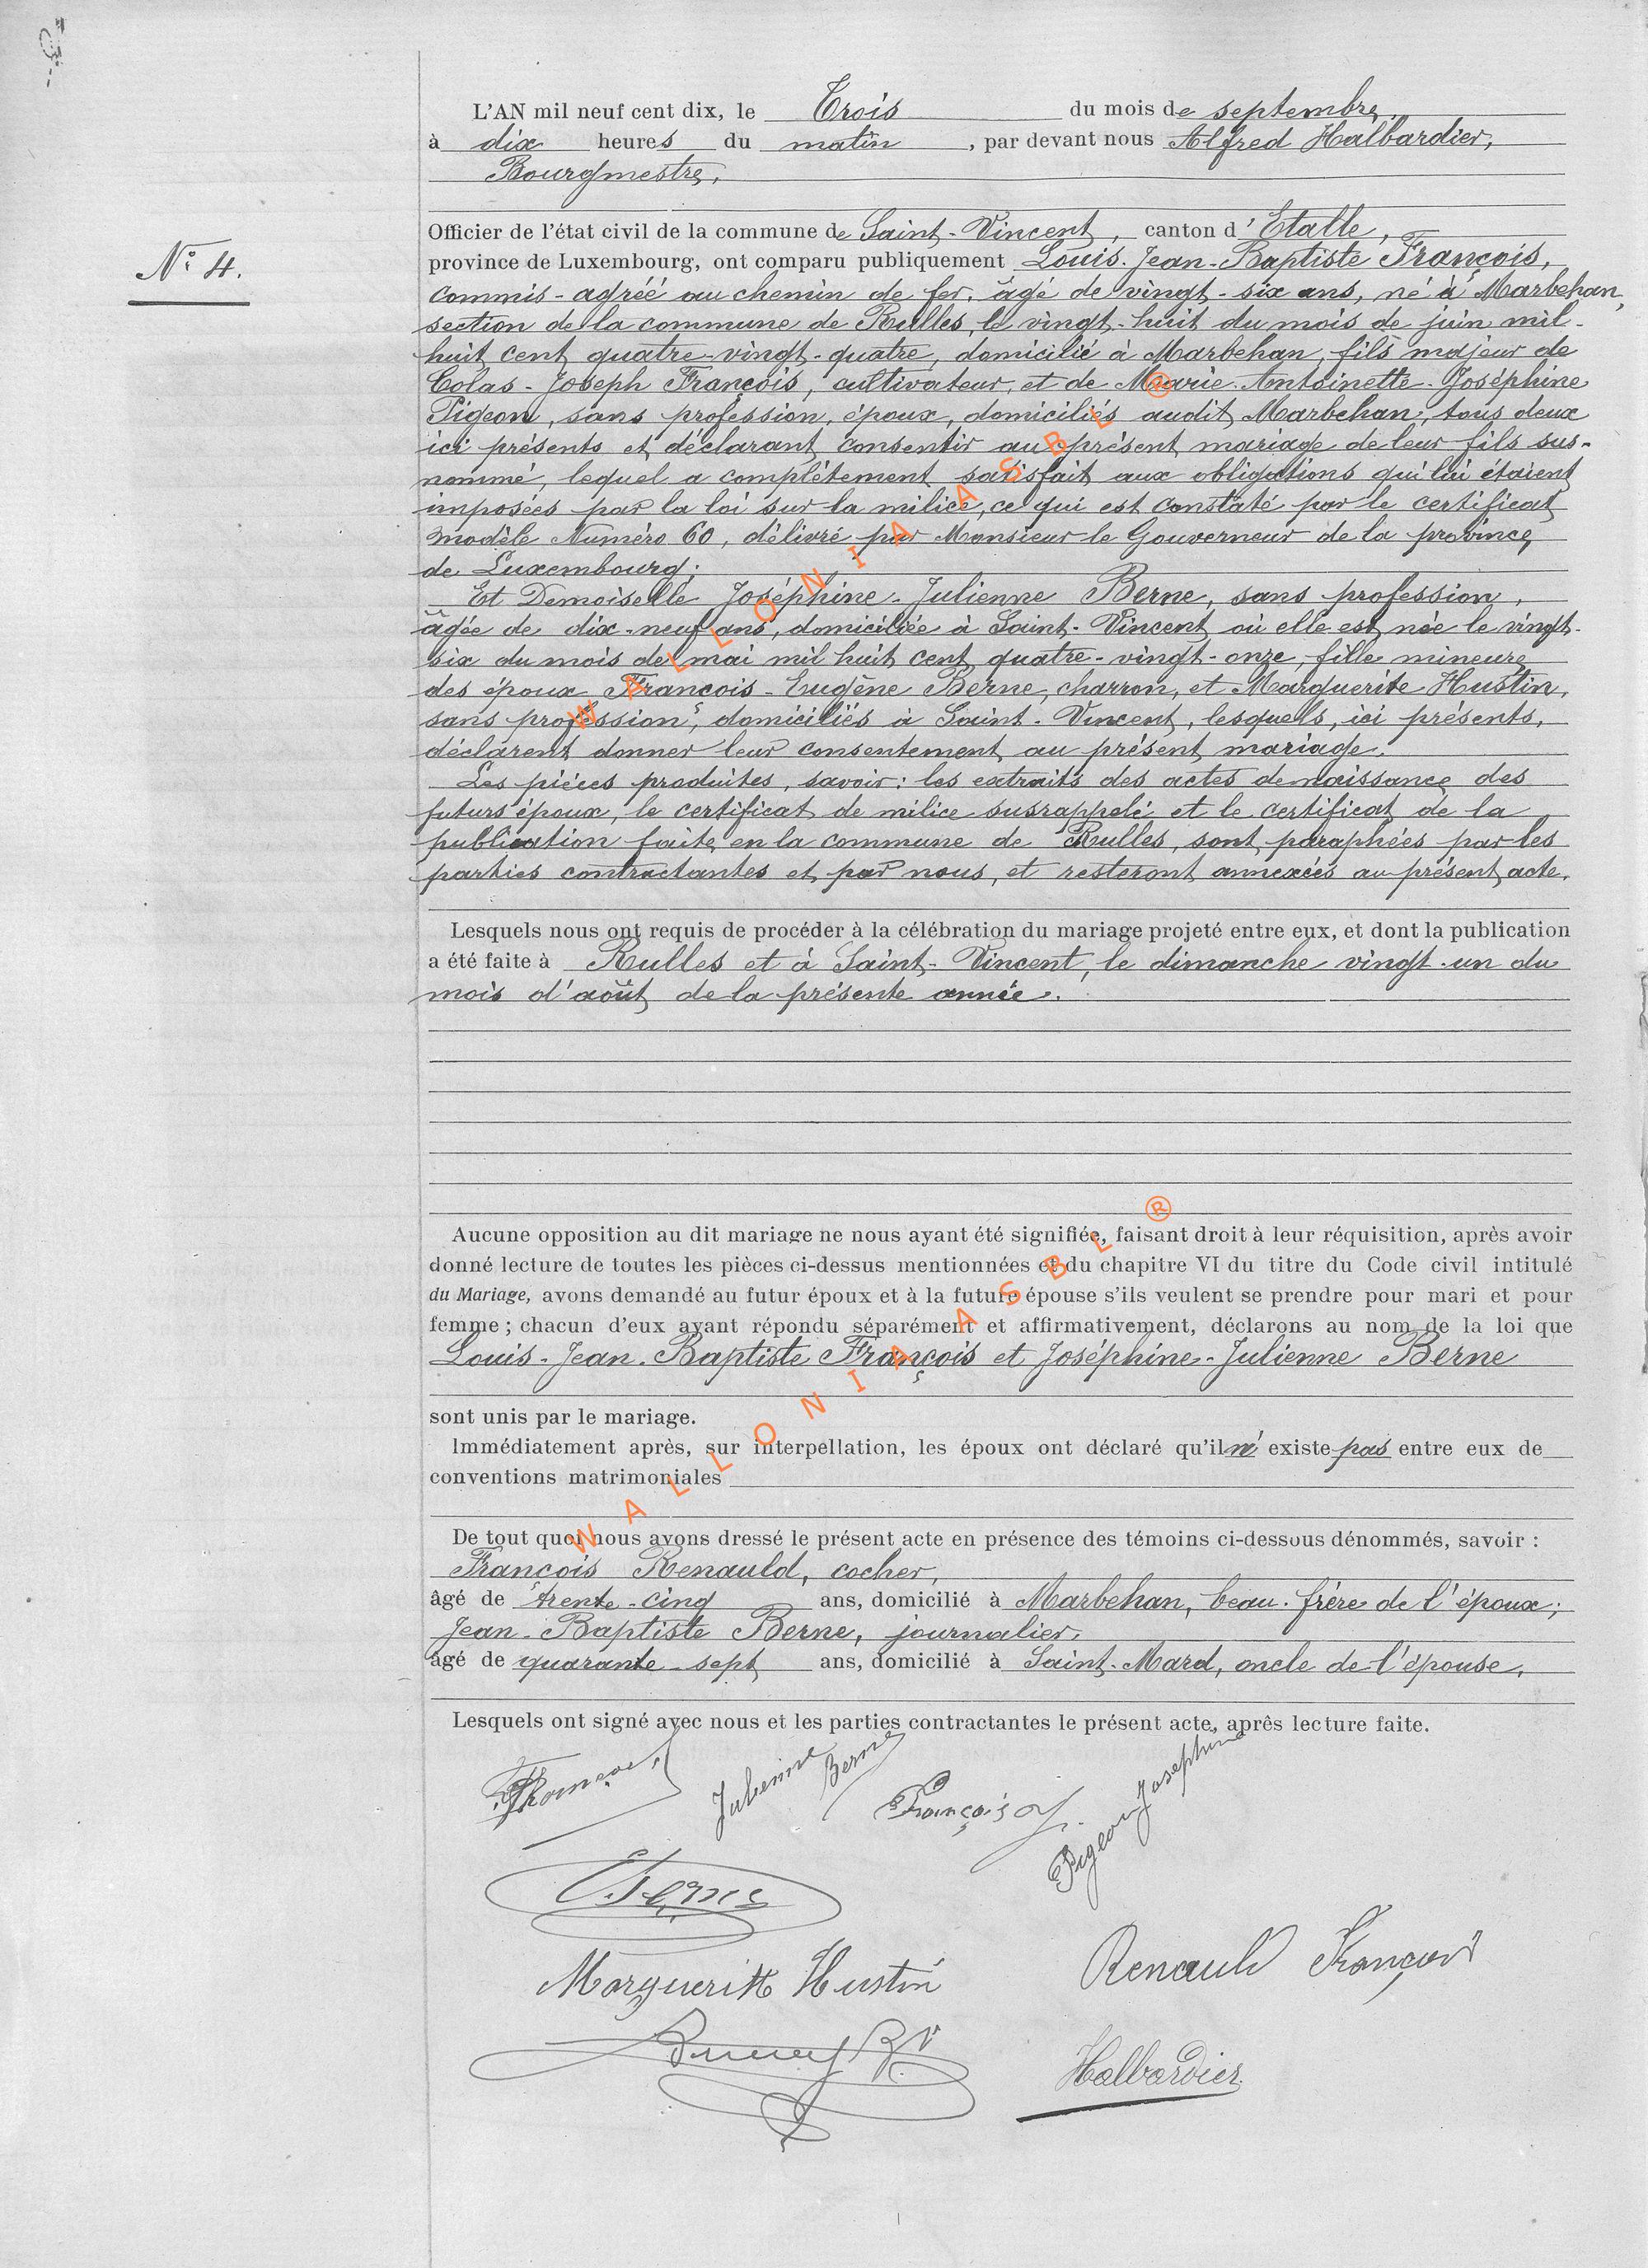 L'AN mil neuf cent dix, le Trois du mois de septembre,
à dix heures du matin, par devant nous Alfred Halbardier,
Bourgmestre,
Officier de l'état civil de la commune de Saint-Vincent, canton d'Etalle,
N° 4.
province de Luxembourg, ont comparu publiquement Louis-Jean-Baptiste François,
commis-agréé au chemin de fer, âgé de vingt-six ans, né à Marbehan,
section de la commune de Rulles, le vingt-huit du mois de juin mil-
huit cent quatre-vingt-quatre, domicilié à Marbehan, fils majeur de
Colas-Joseph François, cultivateur, et de Marie-Antoinette-Joséphine
Pigeon, sans profession, époux, domiciliés audit Marbehan; tous deux
ici présents et déclarant consentir au présent mariage de leur fils sus-
nommé, lequel a complètement satisfait aux obligations qui lui étaient
imposées par la loi sur la milice, ce qui est constaté par le certificat
modèle Numéro 60, délivré par Monsieur le Gouverneur de la province
de Luxembourg;
Et Demoiselle Joséphine-Julienne Berne, sans profession,
âgée de dix-neuf ans, domiciliée à Saint-Vincent où elle est née le vingt-
six du mois de mai mil huit cent quatre-vingt-onze, fille mineure
des époux François-Eugène Berne, charron, et Marguerite Hustin,
sans profession, domiciliés à Saint-Vincent, lesquels, ici présents,
déclarent donner leur consentement au présent mariage.
Les pièces produites, savoir: les extraits des actes de naissance des
futurs époux, le certificat de milice susrappelé et le certificat de la
publication faite en la commune de Rulles, sont paraphées par les
parties contractantes et par nous, et resteront annexées au présent acte.
Lesquels nous ont requis de procéder à la célébration du mariage projeté entre eux, et dont la publication
a été faite à Rulles et à Saint-Vincent, le dimanche vingt-un du
mois d'août de la présente année.
Aucune opposition au dit mariage ne nous ayant été signifiée, faisant droit à leur réquisition, après avoir
donné lecture de toutes les pièces ci-dessus mentionnées et du chapitre VI du titre du Code civil intitulé
du Mariage, avons demandé au futur époux et à la future épouse s'ils veulent se prendre pour mari et pour
femme ; chacun d'eux ayant répondu séparément et affirmativement, déclarons au nom de la loi que
Louis-Jean-Baptiste François et Joséphine-Julienne Berne
sont unis par le mariage.
Immédiatement après, sur interpellation, les époux ont déclaré qu'il n'existe pas entre eux de
conventions matrimoniales
De tout quoi nous avons dressé le présent acte en présence des témoins ci-dessous dénommés, savoir :
François Renauld, cocher,
âgé de trente-cinq ans, domicilié à Marbehan, beau-frère de l'époux;
Jean-Baptiste Berne, journalier,
âgé de quarante-sept ans, domicilié à Saint-Mard, oncle de l'épouse.
Lesquels ont signé avec nous et les parties contractantes le présent acte, après lecture faite.
Julienne Berne
François J.
Pigeon Josephine
Berne
Marguerite Hustin
Renauld François
Halbardier
WALLONIA ASBL ®
WALLONIA ASBL ®